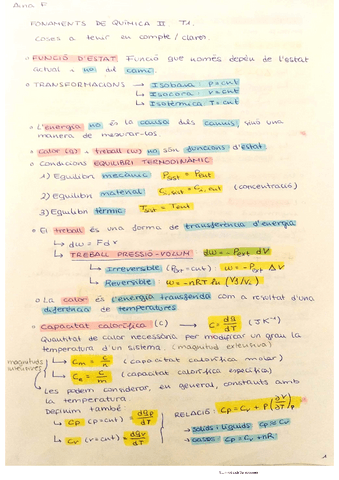 Aina P
FONAMENTS DE QUÍMICA II. T1.
coses a tenir en compte / claves.
◦ FUNCIÓ D'ESTAT. Funció que només depèn de l'estat
actual i no del camí.
◦ TRANSFORMACIONS → Isobara: p = cnt
→ Isocora: v = cnt
→ Isotèrmica: T = cnt
◦ L'energia no és la causa dels canvis, sinó una
manera de mesurar-los
◦ Calor (q) i treball (w) no són funcions d'estat
◦ Condicions EQUILIBRI TERMODINÀMIC
1) Equilibri mecànic Psist = Pent
2) Equilibri material Ci,sist = Ci,ent (concentració)
3) Equilibri tèrmic Tsist = Tent
◦ El treball és una forma de transferència d'energia
↳ dw = Fdx
↳ TREBALL PRESSIÓ-VOLUM dw = -Pext dV
↳ Irreversible (Pext = cnt): w = -Pext ΔV
↳ Reversible: w = -nRT ln (V2/V1)
◦ La calor és l'energia transferida com a resultat d'una
diferència de temperatures
◦ Capacitat calorífica (C) → C = dq/dT (JK⁻¹)
Quantitat de calor necessària per modificar un grau la
temperatura d'un sistema. (magnitud extensiva)
magnituds
intensives
Cm = C/n (capacitat calorífica molar)
Ce = C/m (capacitat calorífica específica)
Les podem considerar, en general, constants amb
la temperatura
Definim també
↳ Cp (p = cnt) = dqp/dT
↳ Cv (v = cnt) = dqv/dT
RELACIÓ: Cp = Cv + P(∂V/∂T)p
↳ sòlids i líquids Cp ≈ Cv
↳ gasos: Cp = Cv + nR
1